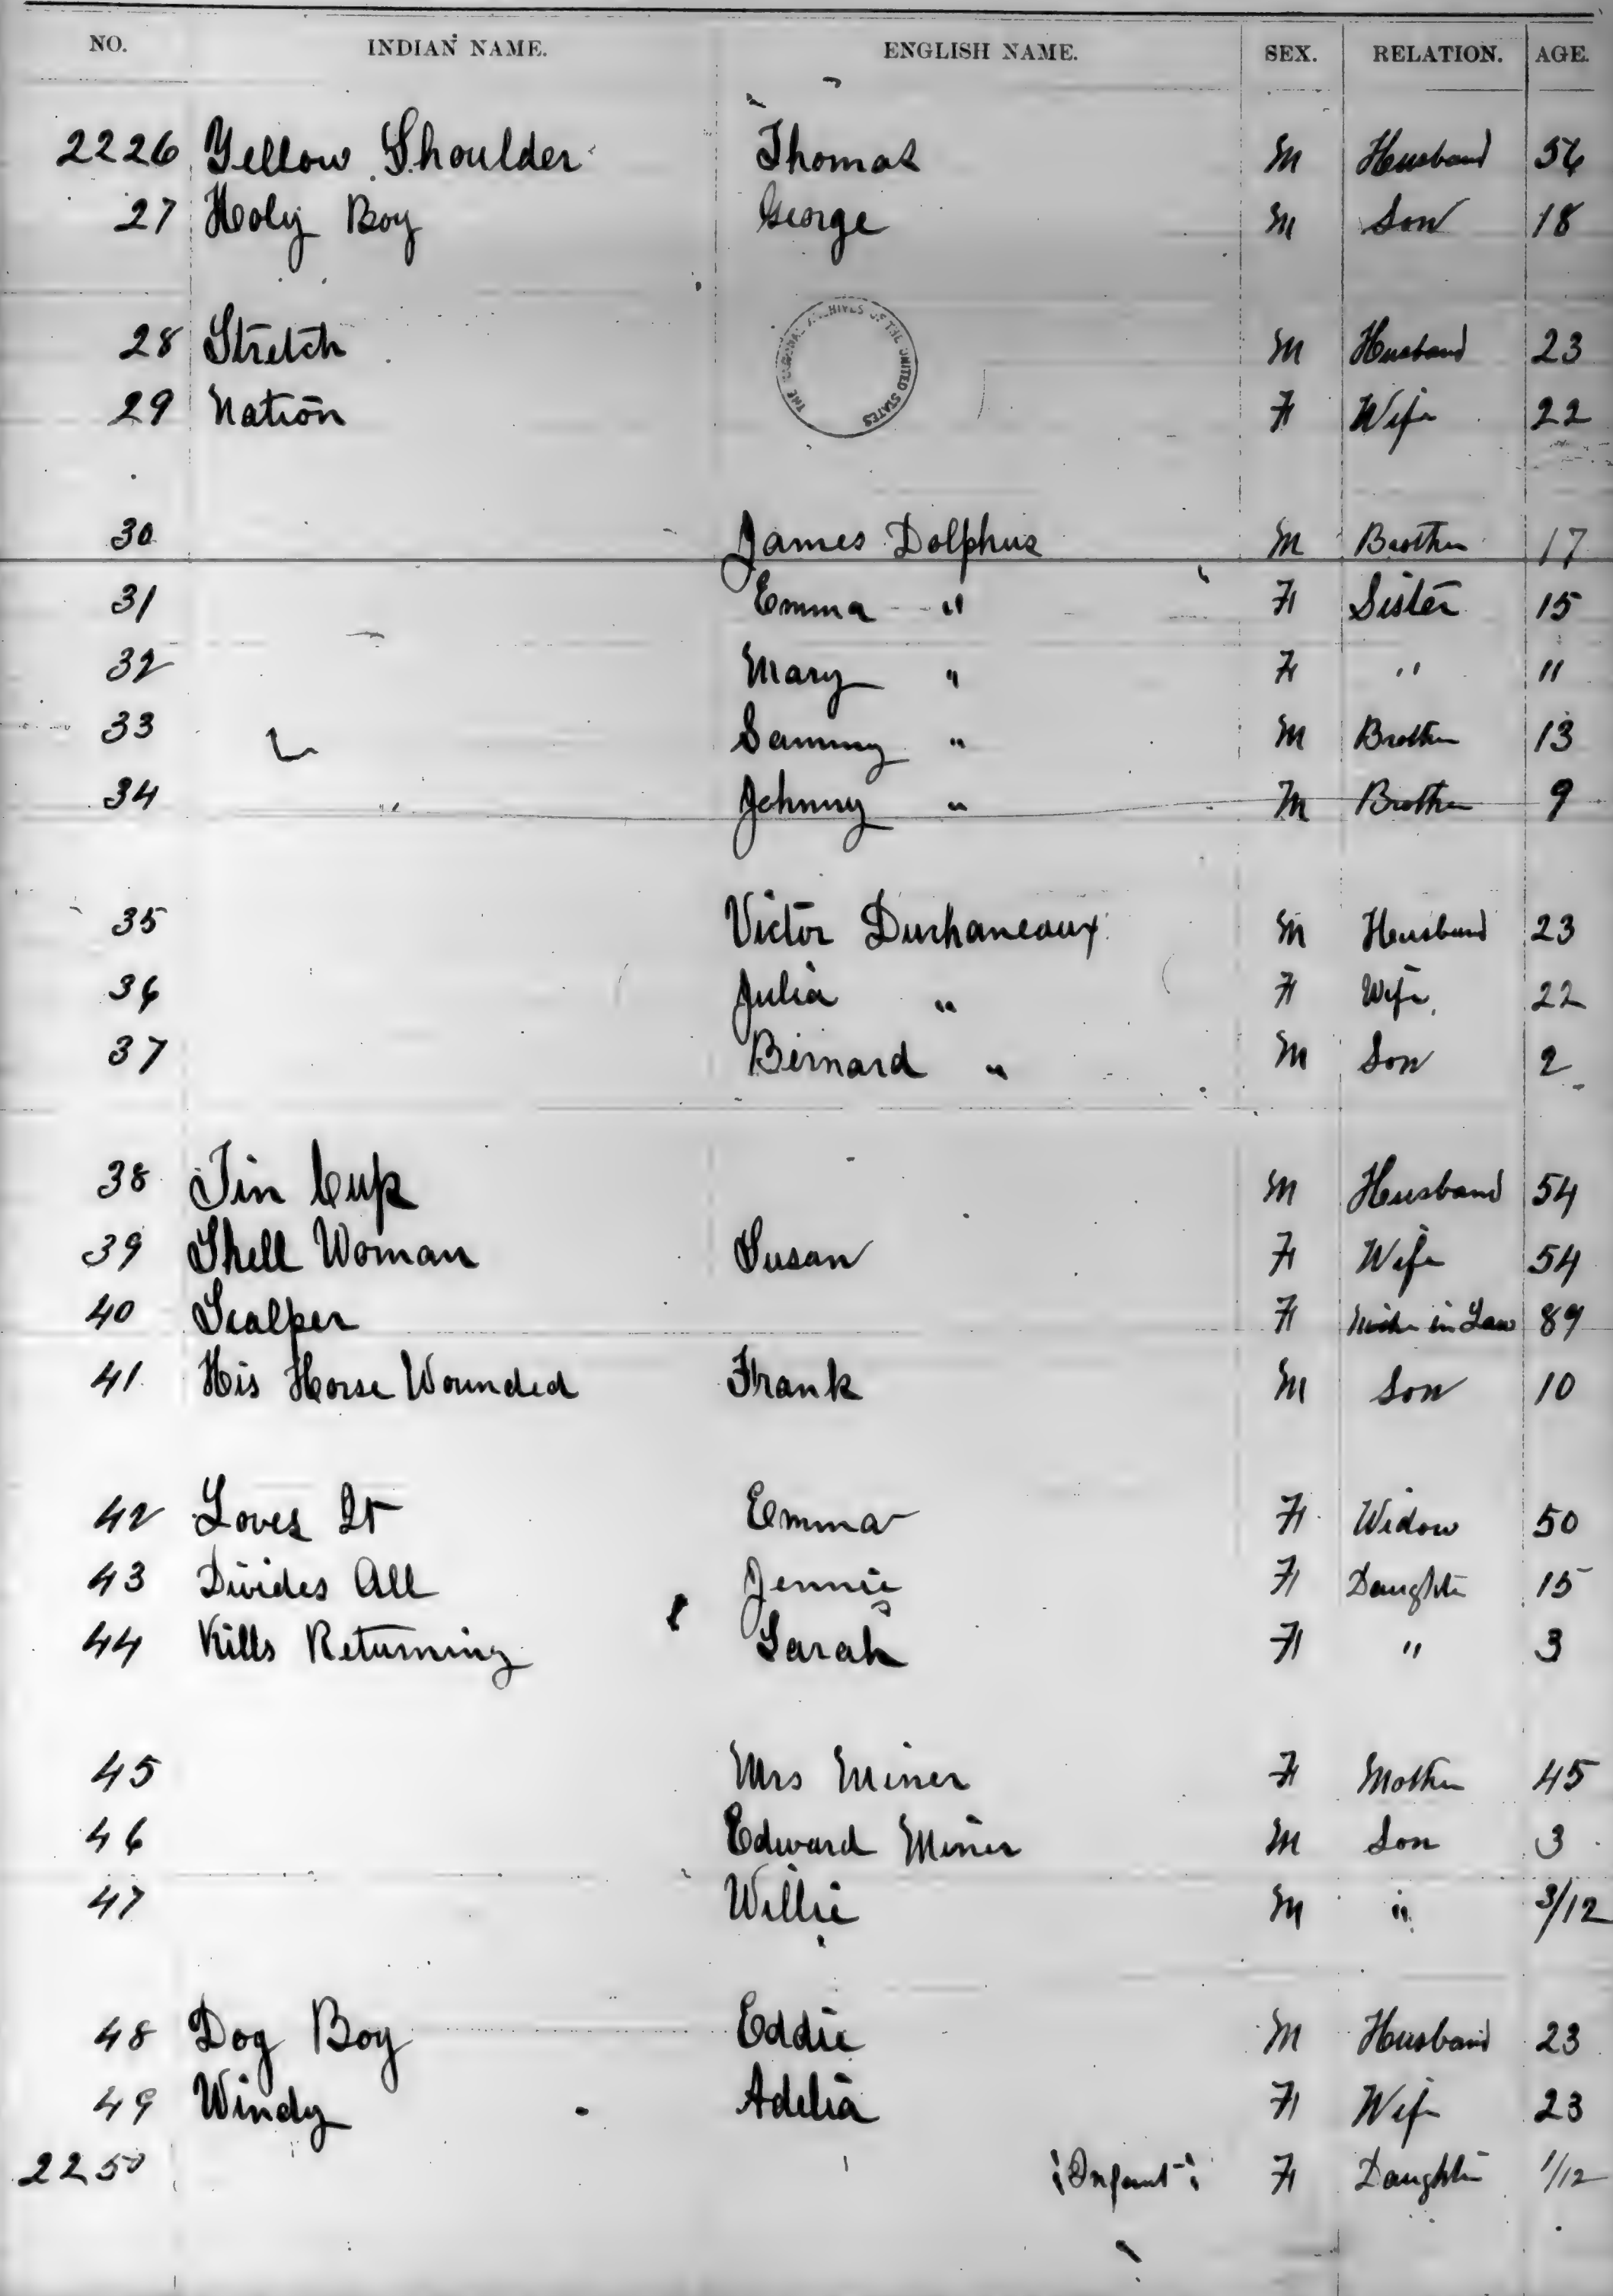 NO. INDIAN NAME. ENGLISH NAME. SEX. RELATION. AGE.
2226 Yellow Shoulder Thomas M Husband 56
27 Holy Boy George M Son 18
THE NATIONAL ARCHIVES OF THE UNITED STATES
28 Stretch M Husband 23
29 Nation F Wife 22
30 James Dolphus M Brother 17
31 Emma " F Sister 15
32 Mary " F " 11
33 Sammy " M Brother 13
34 Johnny " M Brother 9
35 Victor Duchaneaux M Husband 23
36 Julia " F Wife 22
37 Bernard " M Son 2
38 Tin Cup M Husband 54
39 Shell Woman Susan F Wife 54
40 Scalper F in Law 89
41 His Horse Wounded Frank M Son 10
42 Loves It Emma F Widow 50
43 Divides All Jennie F Daughter 15
44 Kills Returning Sarah F " 3
45 Mrs Miner F Mother 45
46 Edward Miner M Son 3
47 Willie M " 3/12
48 Dog Boy Eddie M Husband 23
49 Windy Adelia F Wife 23
2250 (Infant) F Daughter 1/12